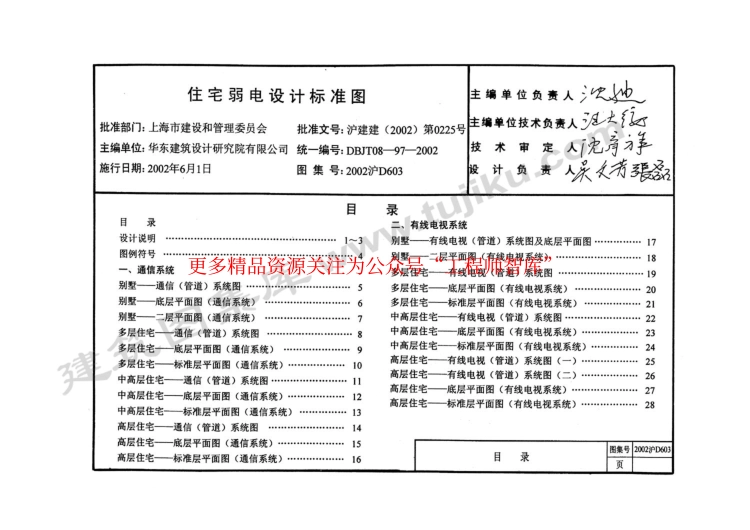 住宅弱电设计标准图
批准部门: 上海市建设和管理委员会 批准文号: 沪建建（2002）第0225号
主编单位: 华东建筑设计研究院有限公司 统一编号: DBJT08—97—2002
施行日期: 2002年6月1日 图 集 号: 2002沪D603
主编单位负责人
主编单位技术负责人
技 术 审 定 人
设 计 负 责 人
目 录
目 录
设计说明 …… 1~3
图例符号 …… 4
一、通信系统
别墅——通信（管道）系统图 …… 5
别墅——底层平面图（通信系统） …… 6
别墅——二层平面图（通信系统） …… 7
多层住宅——通信（管道）系统图 …… 8
多层住宅——底层平面图（通信系统） …… 9
多层住宅——标准层平面图（通信系统） …… 10
中高层住宅——通信（管道）系统图 …… 11
中高层住宅——底层平面图（通信系统） …… 12
中高层住宅——标准层平面图（通信系统） …… 13
高层住宅——通信（管道）系统图 …… 14
高层住宅——底层平面图（通信系统） …… 15
高层住宅——标准层平面图（通信系统） …… 16
二、有线电视系统
别墅——有线电视（管道）系统图及底层平面图 …… 17
别墅——二层平面图（有线电视系统） …… 18
多层住宅——有线电视（管道）系统图 …… 19
多层住宅——底层平面图（有线电视系统） …… 20
多层住宅——标准层平面图（有线电视系统） …… 21
中高层住宅——有线电视（管道）系统图 …… 22
中高层住宅——底层平面图（有线电视系统） …… 23
中高层住宅——标准层平面图（有线电视系统） …… 24
高层住宅——有线电视（管道）系统图（一） …… 25
高层住宅——有线电视（管道）系统图（二） …… 26
高层住宅——底层平面图（有线电视系统） …… 27
高层住宅——标准层平面图（有线电视系统） …… 28
更多精品资源关注为公众号“工程师智库”
建筑图集库 www.tujiku.com
目 录
图集号 2002沪D603
页